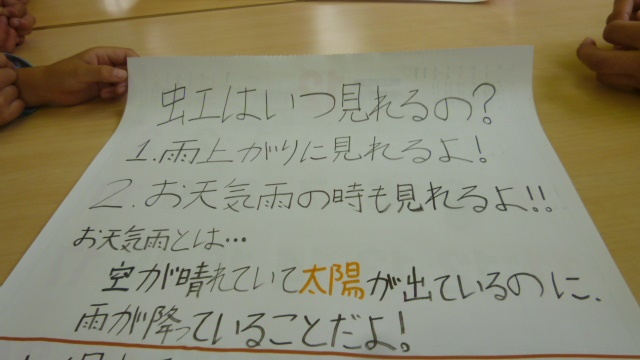 虹はいつ見れるの?
1.雨上がりに見れるよ!
2.お天気雨の時も見れるよ!!
お天気雨とは…
空が晴れていて太陽が出ているのに、
雨が降っていることだよ!